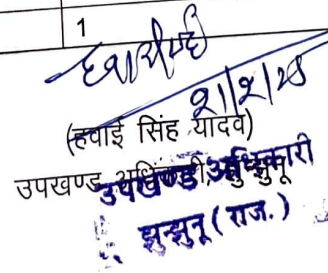 1
21/2/25
(हवाई सिंह यादव)
उपखण्ड अधिकारी, झुन्झुनू
उपखण्ड अधिकारी
झुन्झुनू (राज.)